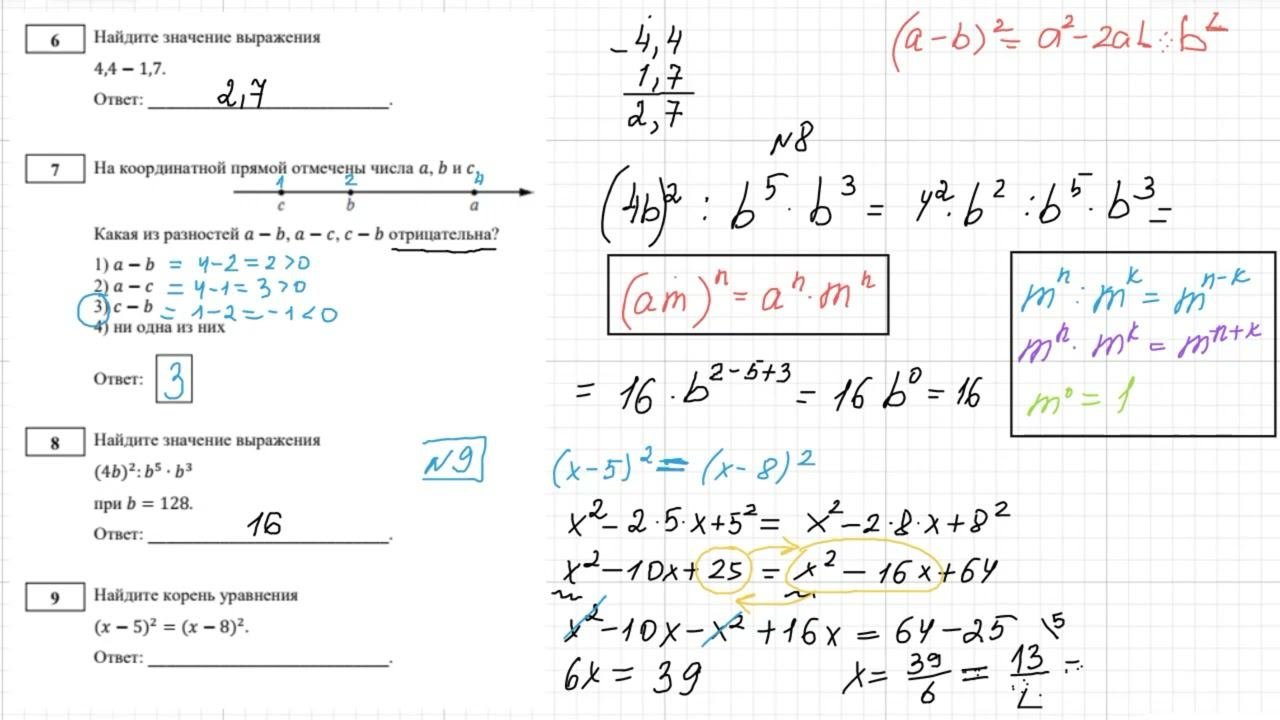 6 Найдите значение выражения
4,4 − 1,7.
Ответ: 2,7.
7 На координатной прямой отмечены числа a, b и c.
1 2 4
c b a
Какая из разностей a − b, a − c, c − b отрицательна?
1) a − b = 4-2=2>0
2) a − c = 4-1=3>0
3) c − b = 1-2=-1<0
4) ни одна из них
Ответ: 3
8 Найдите значение выражения
(4b)²: b⁵ · b³
при b = 128.
Ответ: 16.
9 Найдите корень уравнения
(x − 5)² = (x − 8)².
Ответ: .
4,4
− 1,7
2,7
(a-b)²= a²-2ab
N8
(4b)² : b⁵ · b³ = 4²·b² : b⁵ · b³ =
(am)ⁿ = aⁿ · mⁿ
mⁿ : mᵏ = mⁿ⁻ᵏ
mⁿ · mᵏ = mⁿ⁺ᵏ
m⁰ = 1
= 16 · b²⁻⁵⁺³ = 16b⁰ = 16
N9
(x-5)² = (x-8)²
x² - 2·5·x + 5² = x² - 2·8·x + 8²
x² - 10x + 25 = x² - 16x + 64
x² - 10x - x² + 16x = 64 - 25
6x = 39
x = 39/6 = 13/2 =